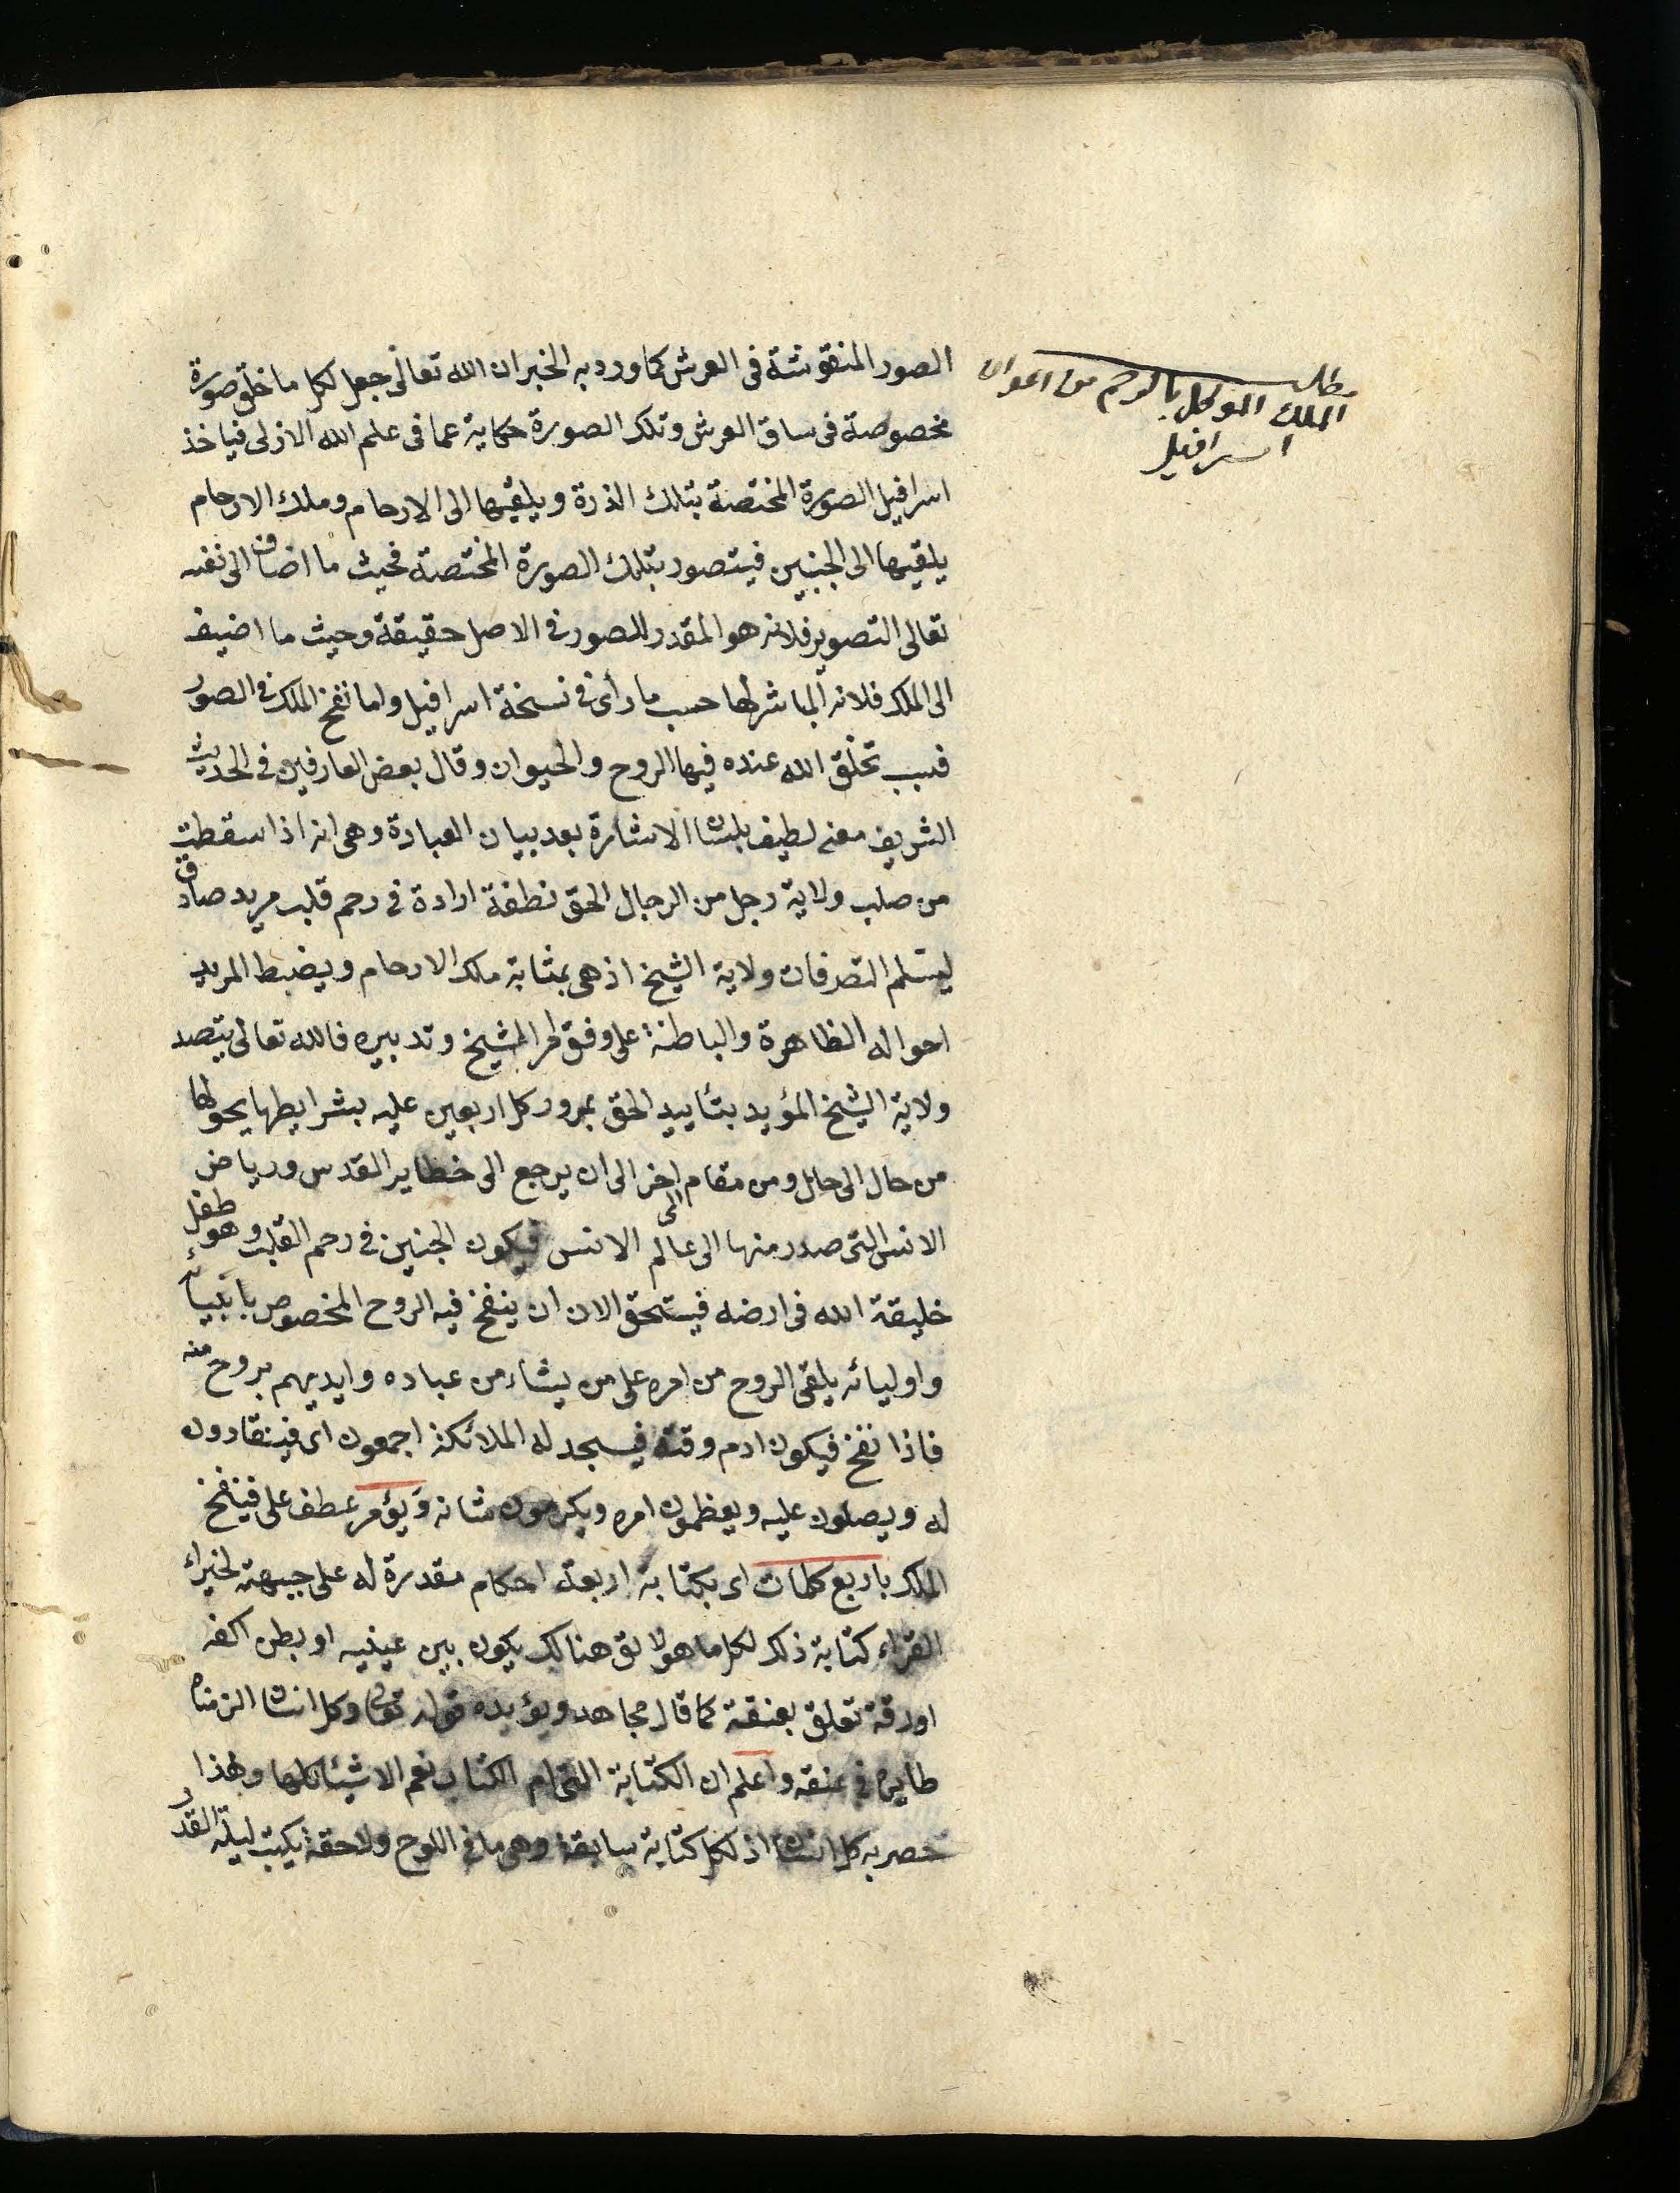 مطلب
الملك الموكل بالرحم من اعوان
اسرافيل
الصور المنقوشة فى العرش كما ورد به الخبر ان الله تعالى جعل لكل ما خلق صورة
مخصوصة فى ساق العرش وتلك الصورة حكاية عما فى علم الله الازلى فياخذ
اسرافيل الصورة المختصة بتلك الذرة ويلقيها الى الارحام وملك الارحام
يلقيها الى الجنين فيتصور بتلك الصورة المختصة فحيث ما اضاف الى نفسه
تعالى التصوير فلانه هو المقدر للصور فى الاصل حقيقة وحيث ما اضيف
الى الملك فلانه المباشر لها حسب ما رأى فى نسخة اسرافيل واما نفخ الملك فى الصور
فسبب تخلق الله عنده فيها الروح والحيوان وقال بعض العارفين فى الحديث
الشريف معنى لطيف بلسان الاشارة بعد بيان العبادة وهى انه اذا سقطت
من صلب ولاية رجل من الرجال الحق نطفة ارادة فى رحم قلب مريد صادق
ليستلم التصرفات ولاية الشيخ اذ هى بمثابة ملك الارحام ويضبط المريد
احواله الظاهرة والباطنة على وفق امر الشيخ وتدبيره فالله تعالى بتصد
ولاية الشيخ المؤيد بتأييد الحق بمرور كل اربعين عليه بشرايطها يحولها
من حال الى حال ومن مقام الى اخر الى ان يرجع الى خظاير القدس ورياض
الانس التى صدر منها الى عالم الانس فيكون الجنين فى رحم القلب وهو طفل
خليقة الله فى ارضه فيستحق الان ان ينفخ فيه الروح المخصوص بانبيائه
واوليائه يلقى الروح من امره على من يشاء من عباده وايديهم بروح منه
فاذا نفخ فيكون ادم وقته فيسجد له الملائكة اجمعون اى فينقادون
له ويصلون عليه ويعظمون امره ويكرمون شانه ويؤمر عطف على فينفخ
الملك باربع كلمات اى بكتابة اربعة احكام مقدرة له على جبهته لخبراء
القراء كتابة ذلك لكل ما هو لائق هنالك يكون بين عينيه او بطن اكفه
او رقة تعلق بعنقة كما قال مجاهد ويؤيده قوله تعالى وكل انسان الزمناه
طايره فى عنقه واعلم ان الكتابة التى ام الكتاب تعم الاشياء كلها وهذا
خصر به كل انسان اذ لكل كتابة سابقة وهى ما فى اللوح ولاحقة يكتب ليلة القدر